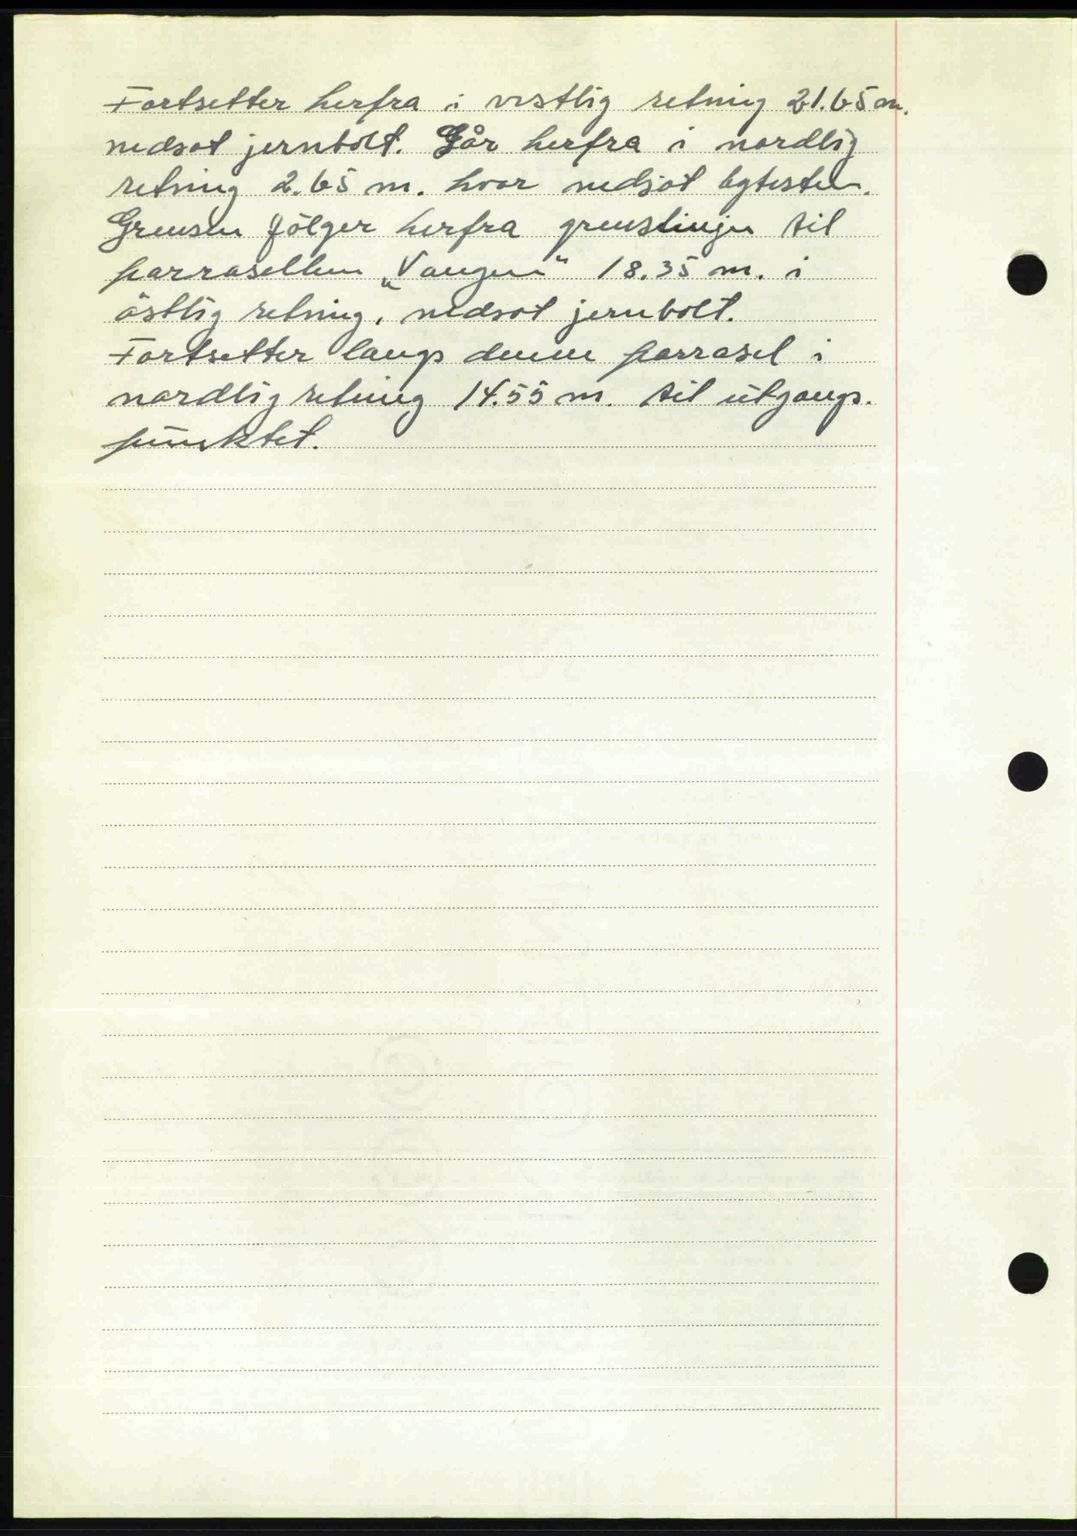 Fortsetter herfra i vestlig retning 21.65 m.
nedsat jernbolt. Går herfra i nordlig
retning 2.65 m. hvor nedsat bytesten.
Grensen følger herfra grenslinjen til
parrasellen „Vangen" 18.35 m. i
østlig retning, nedsat jernbolt.
Fortsetter langs denne parrasel i
nordlig retning 14.55 m. til utgangs-
punktet.